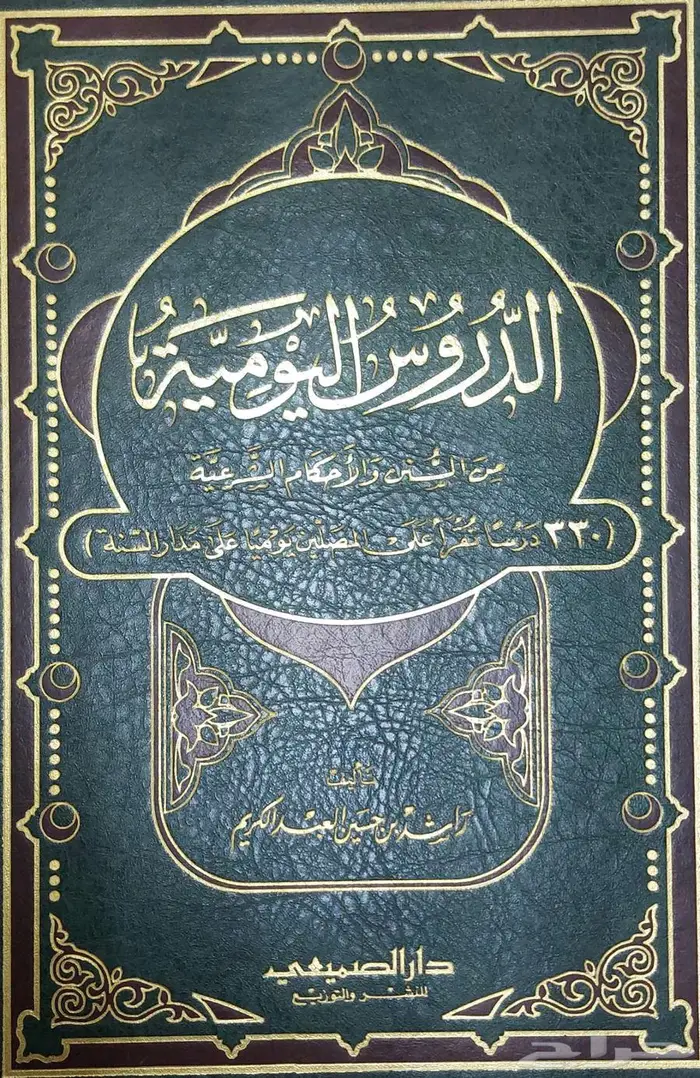 الدُّرُوسُ اليَوْمِيَّةُ
مِنَ السُّنَنِ وَالأَحْكَامِ الشَّرْعِيَّةِ
(٣٣٠ دَرْسًا تُقْرَأُ عَلَى المُصَلِّينَ يَوْمِيًّا عَلَى مَدَارِ السَّنَةِ)
تأليف
راشد بن حسين العبد الكريم
دار الصميعي
للنشر والتوزيع
حراج